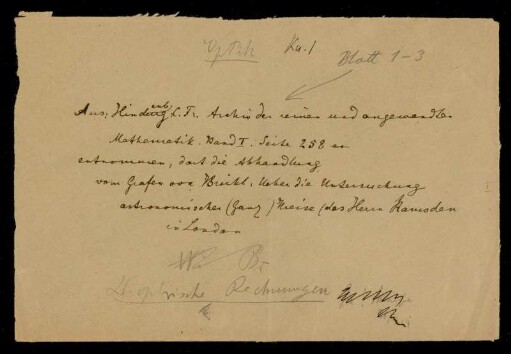 Optik Ka. 1 Blatt 1-3
Aus: Hindenburg C. Fr. Archiv der reinen und angewandten
Mathematik. Band I. Seite 258 an
entnommen, dort die Abhandlung
vom Grafen von Brühl. Ueber die Untersuchung
astronomischer (Ganz) Kreise (des Herrn Ramsden
in London
optische Rechnungen